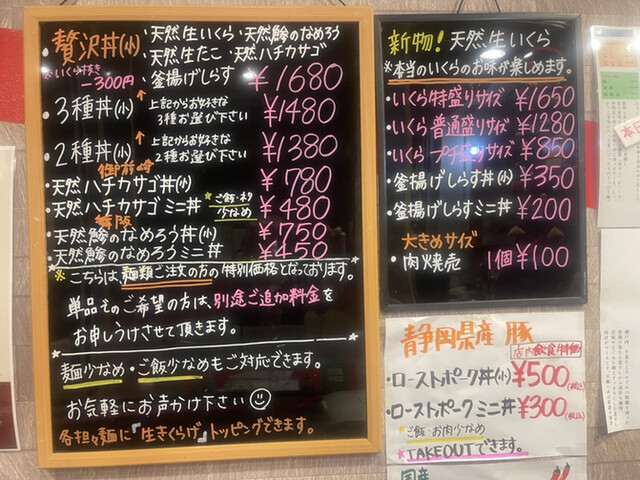 贅沢丼(小)
・天然生いくら・天然鯵のなめろう
・天然生たこ・天然ハチカサゴ
・釜揚げしらす ¥1680
※いくら抜き
-300円
・3種丼(小) 上記からお好きな
3種お選び下さい ¥1480
・2種丼(小) 上記からお好きな
2種お選び下さい ¥1380
御前崎
・天然ハチカサゴ丼(小) ¥780
・天然ハチカサゴミニ丼 ご飯・ネタ
少なめ ¥480
舞阪
・天然鯵のなめろう丼(小) ¥750
・天然鯵のなめろうミニ丼 ¥450
※こちらは、麺類ご注文の方の特別価格となっております。
単品でのご希望の方は、別途ご追加料金を
お申しうけさせて頂きます。
麺少なめ・ご飯少なめもご対応できます。
お気軽にお声かけ下さい
各担々麺に『生きくらげ』トッピングできます。
新物!天然生いくら
※本当のいくらのお味が楽しめます。
・いくら特盛りサイズ ¥1650
・いくら普通盛りサイズ ¥1280
・いくらプチ盛りサイズ ¥850
・釜揚げしらす丼(小) ¥350
・釜揚げしらすミニ丼 ¥200
大きめサイズ
・肉焼売 1個¥100
静岡県産豚
店内飲食特価
・ローストポーク丼(小) ¥500(税込)
・ローストポークミニ丼 ¥300(税込)
ご飯・お肉少なめ
TAKEOUTできます。
国産
本日